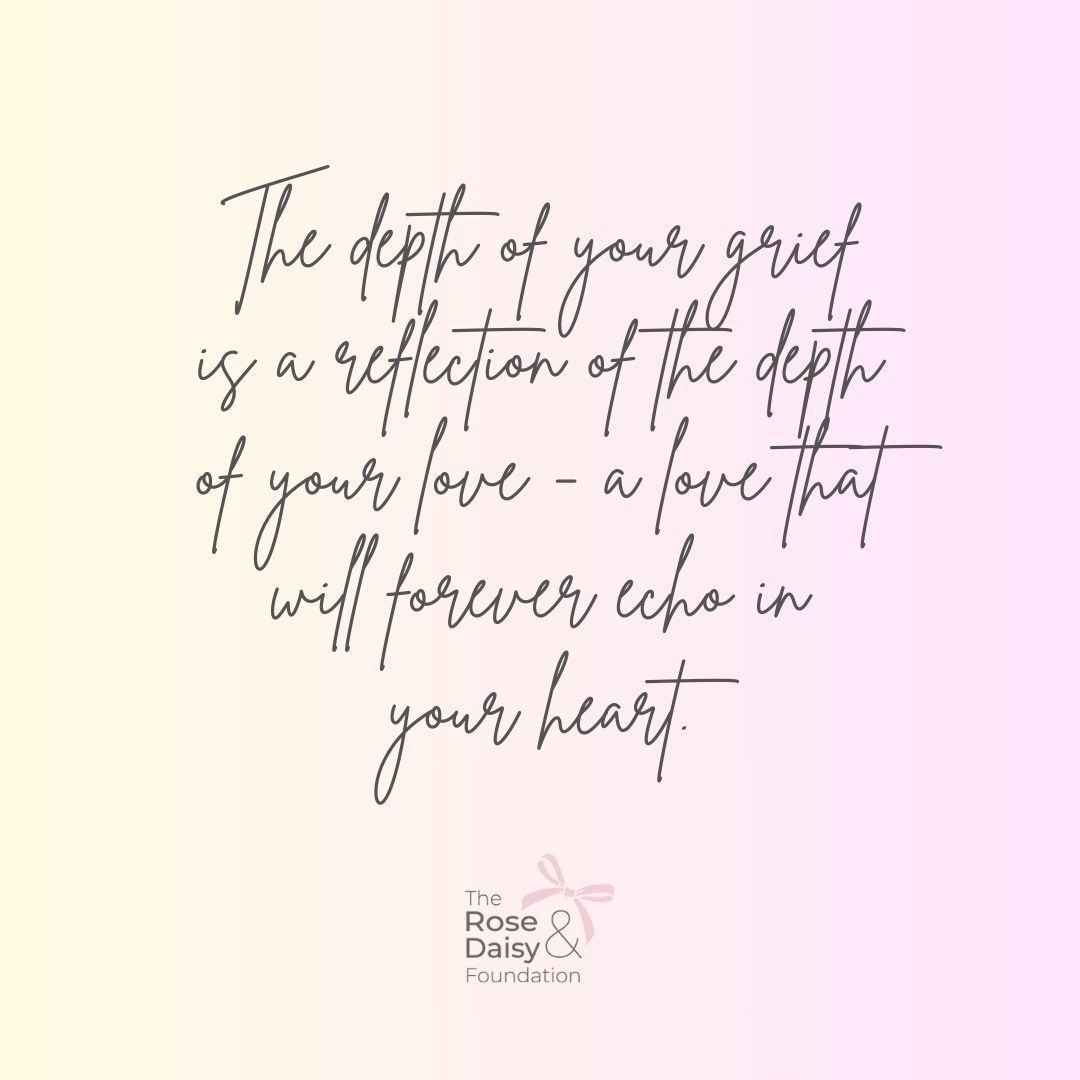 The depth of your grief
is a reflection of the depth
of your love - a love that
will forever echo in
your heart.
The
Rose &
Daisy
Foundation